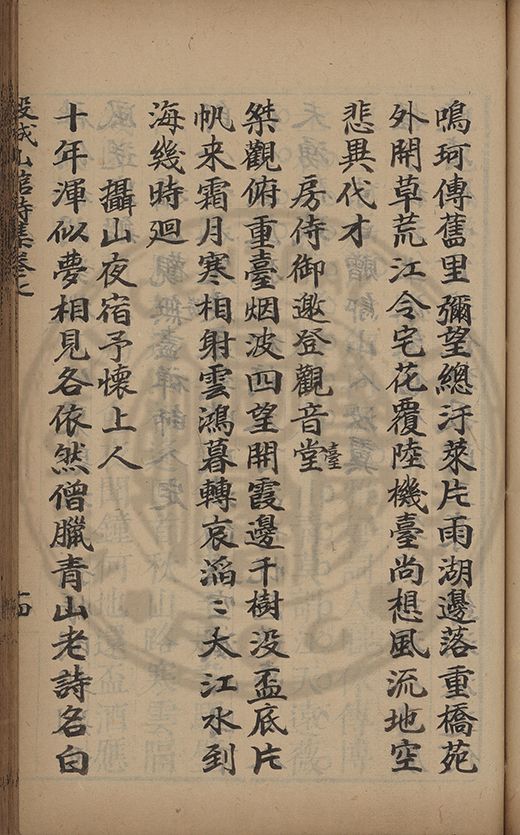 鳴珂傳舊里彌望總汙萊片雨湖邊落重橋苑
外開草荒江令宅花覆陸機臺尚想風流地空
悲異代才
房侍御邀登觀音堂臺
桀觀俯重臺烟波四望開霞邊千樹没盃底片
帆来霜月寒相射雲鴻暮轉哀滔〻大江水到
海幾時迴
攝山夜宿予懷上人
十年渾似夢相見各依然僧臘青山老詩名白
殷城山舘詩集卷七
十四